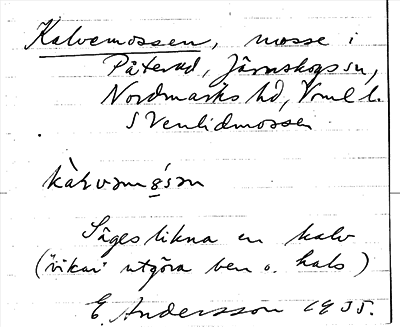 Kalvemossen, mosse i
Påterud, Järnskogs sn,
Nordmarks hd, Vrml l.
S Venlidmossen
kàrvəmɷ́sən
Säges likna en kalv
("vikar" utgöra ben o. hals)
E. Andersson 1935.